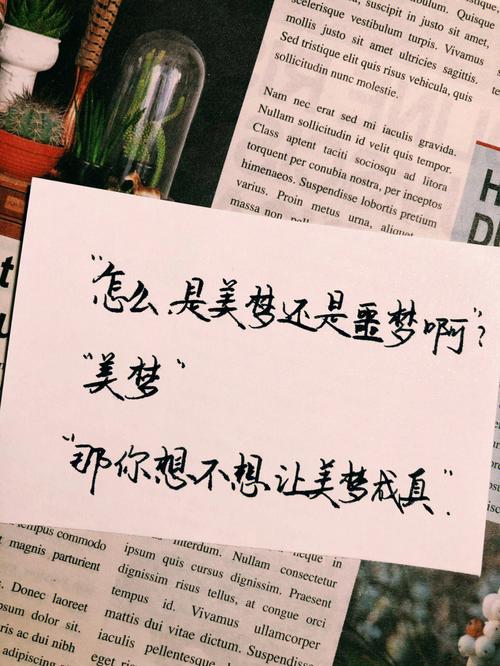 suscipit in justo sit amet,
scelerisque vestibulum. Quisque
mollis justo sit amet turpis. Vivamus
Sed tristique elit quis ultricies sagittis.
sollicitudin nunc molestie. risus vehicula, quis
Nam nec erat sed mi iaculis gravida.
Nullam sollicitudin id velit quis tempor.
Class aptent taciti sociosqu ad litora
torquent per conubia nostra, per inceptos
himenaeos. Suspendisse lobortis pretium
varius. Proin metus urna, aliquet
massa non
"怎么、是美梦还是噩梦啊"?
"美梦"
"那你想不想让美梦成真".
tempus commodo
magnis parturient
Donec laoreet
dolor sit.
ac dui nibh
interdum. Nullam consectetur
ipsum quis cursus dignissim.
dignissim risus tellus, Praesent
tempus id. Vivamus at congue orci
mattis dui vitae dictum. ullamcorper
iaculis pellentesque
eget